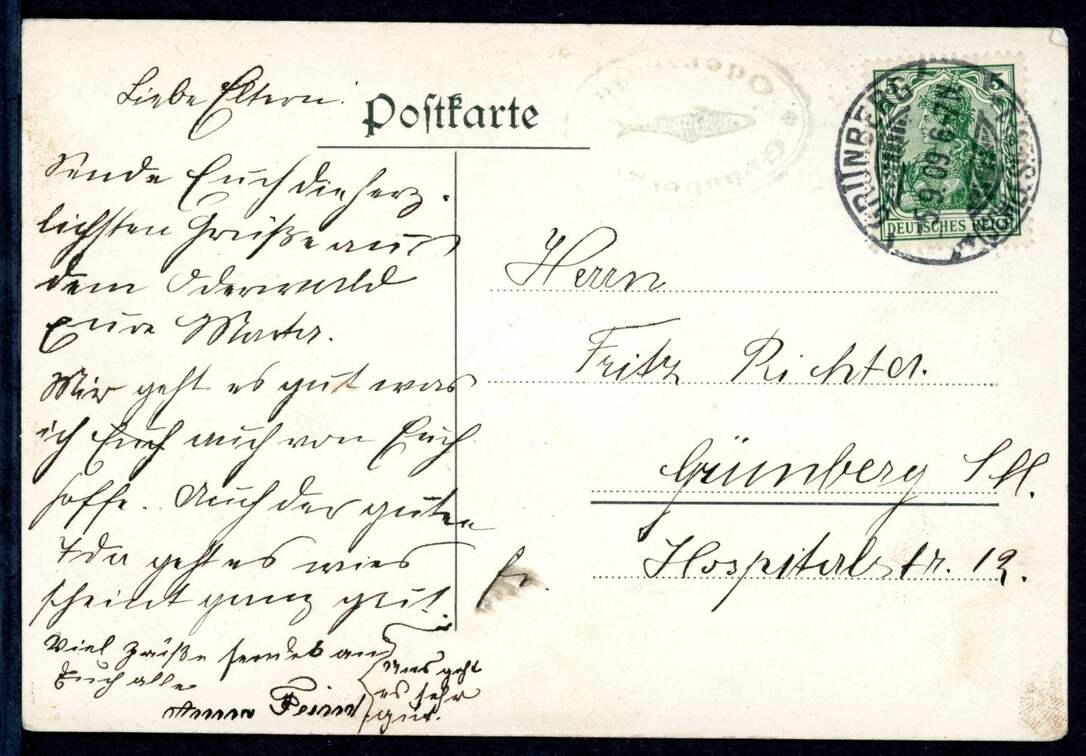 Liebe Eltern!
Postkarte
Sende Euch die herz-
lichsten Grüße aus
dem Oderwald
Eure Martha.
Mir geht es gut was
ich Euch auch von Euch
hoffe. Auch der guten
Ida geht es wies
scheint ganz gut.
Viel Grüße sendet an
Euch alle
Anna
Uns geht
es sehr
gut.
Oderwald
Grünberg
GRÜNBERG
5.9.09.6-7N
5 5
DEUTSCHES REICH
Herrn
Fritz Richter.
Grünberg Schl.
Hospitalstr. 12.